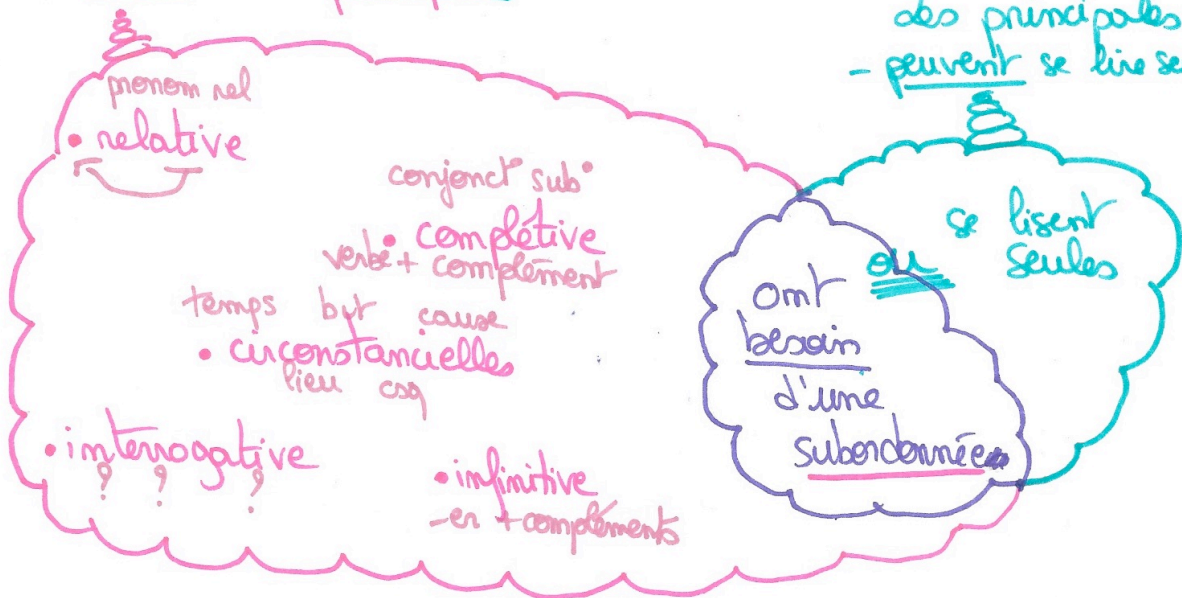 des principales
- peuvent se lire se
pronom rel
• relative
conjonct° sub°
• complétive
verbe + complément
temps but cause
• circonstancielles
lieu csq
• interrogative
? ? ?
• infinitive
-er + compléments
se lisent
seules
ou
ont
besoin
d'une
subordonnée